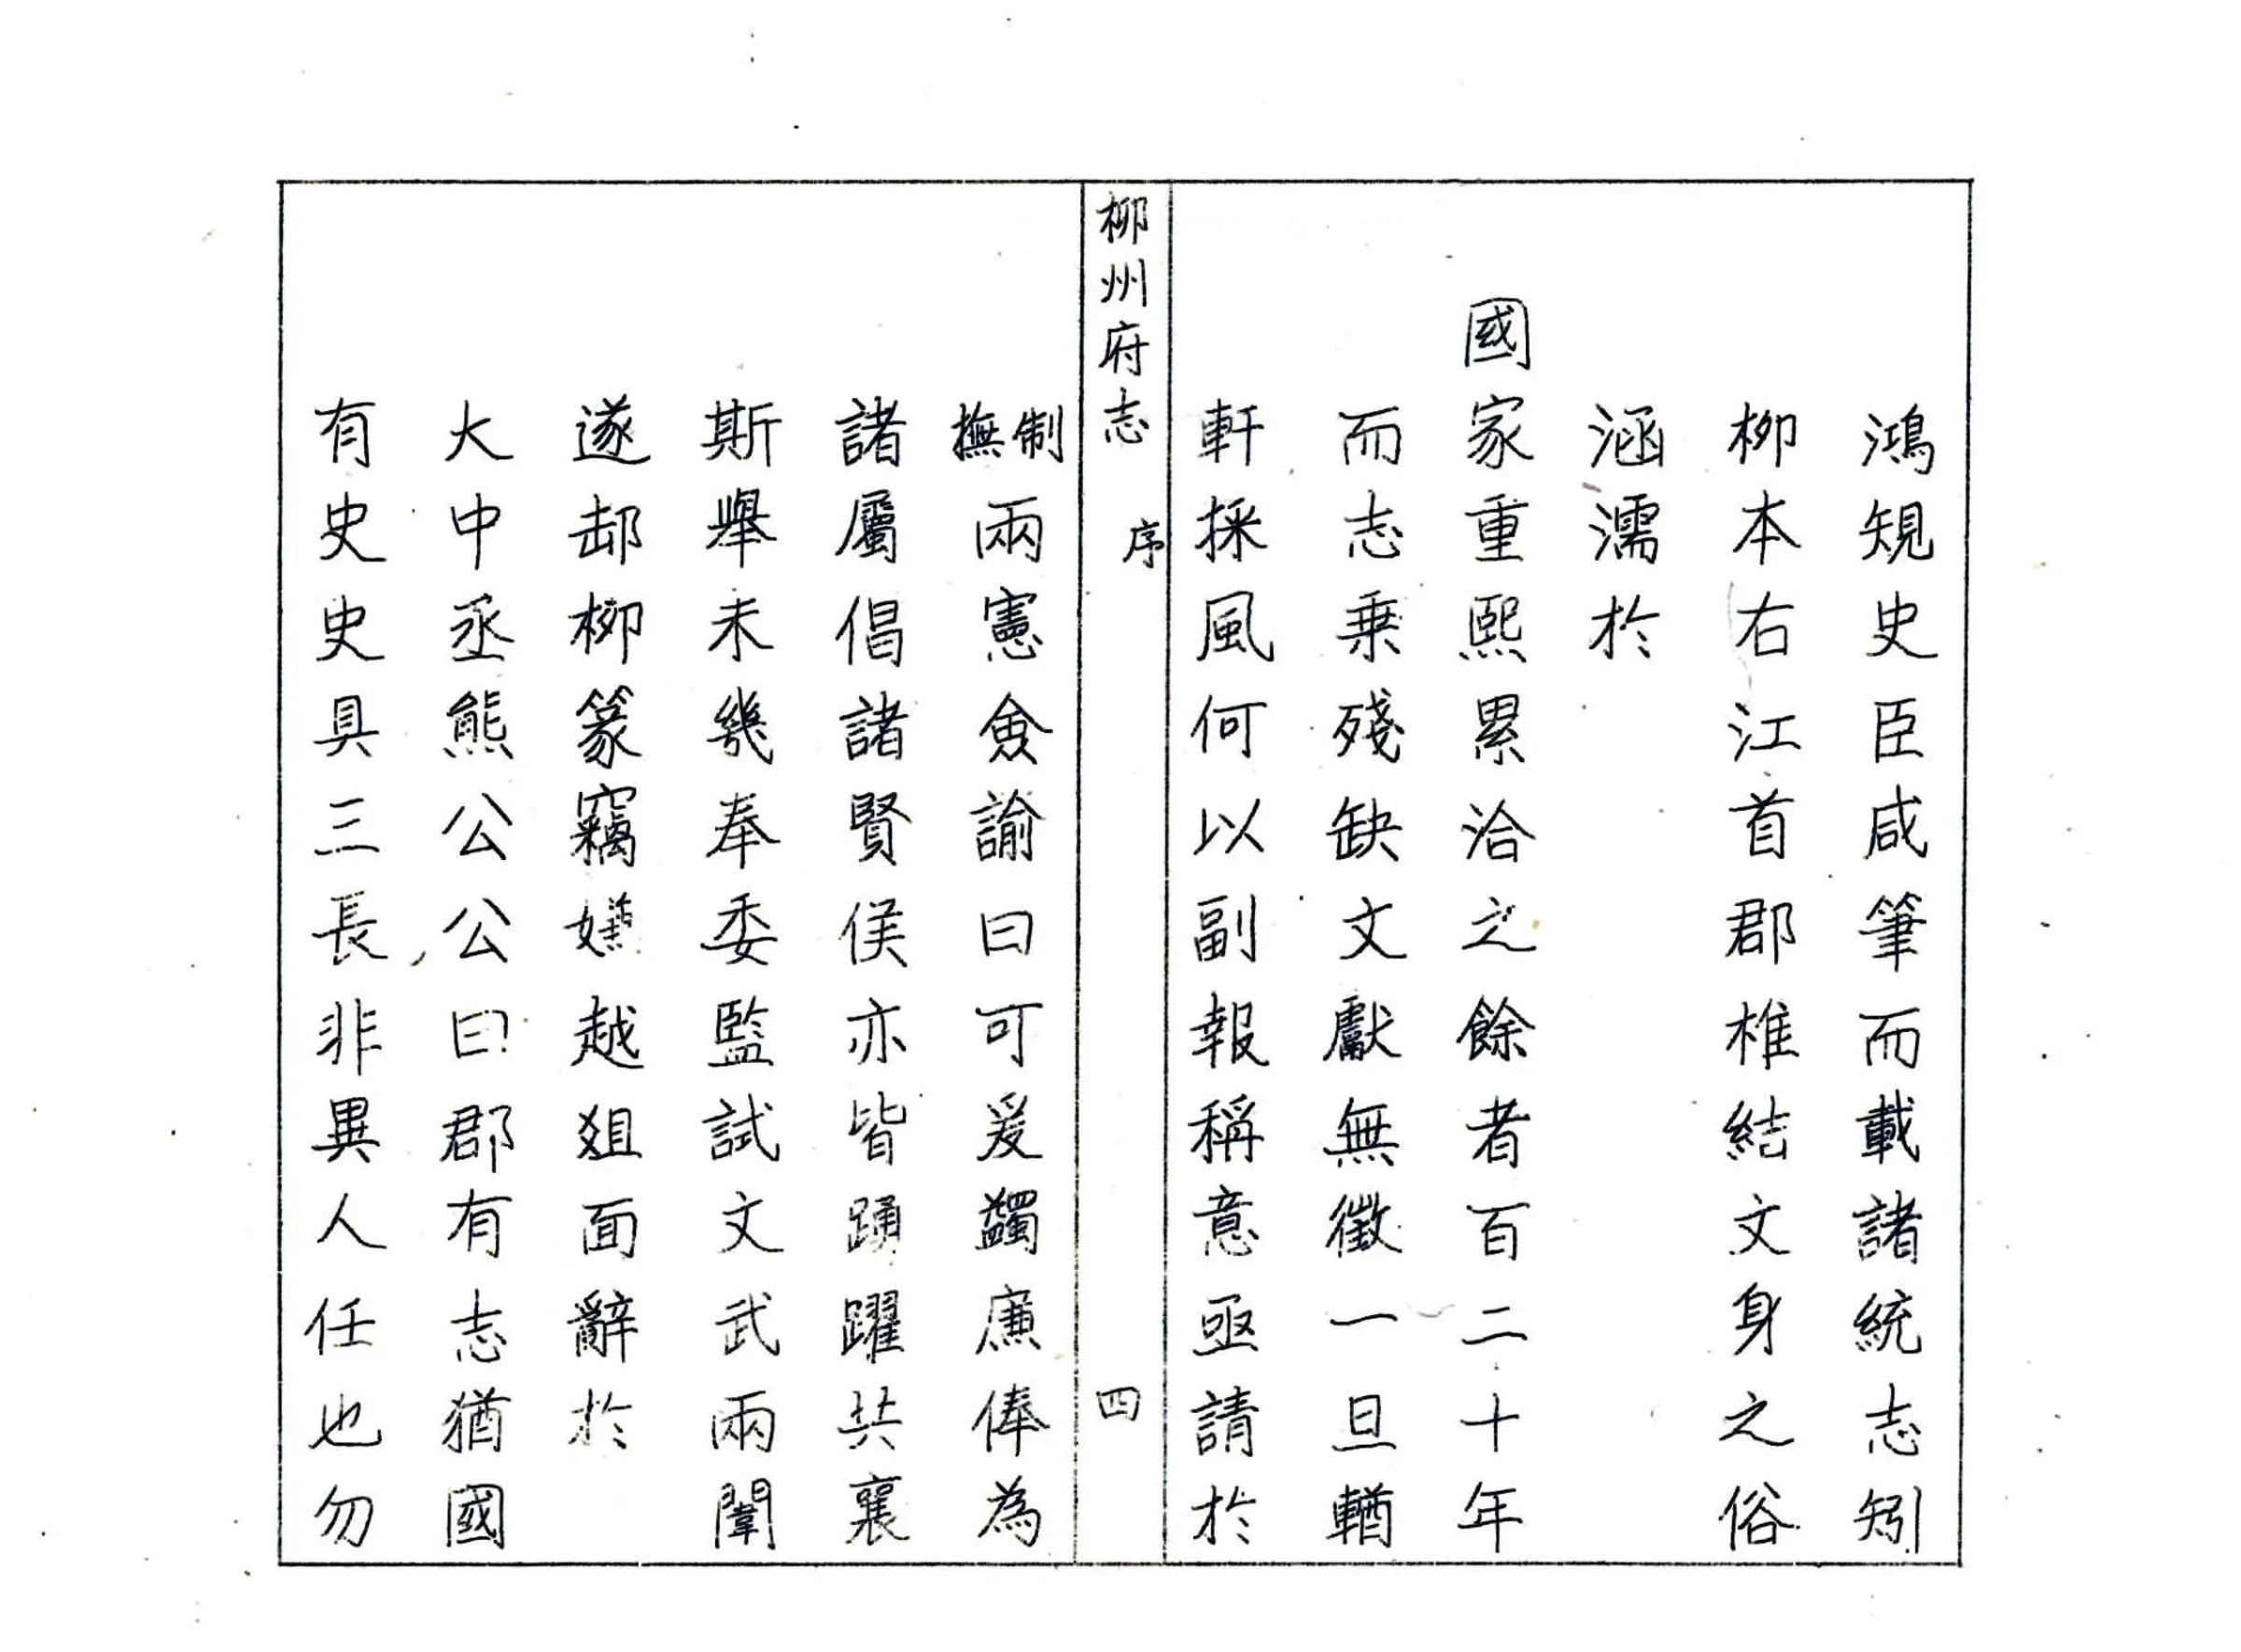 鴻規史臣咸筆而載諸統志矧
柳本右江首郡椎結文身之俗
涵濡於
國家重熙累洽之餘者百二十年
而志乗殘缺文獻無徵一旦輶
軒採風何以副報稱意亟請於
柳州府志 序 四
制撫兩憲僉諭曰可爰蠲廉俸為
諸屬倡諸賢侯亦皆踴躍共襄
斯舉未幾奉委監試文武兩闈
遂郄柳篆竊嫌越俎面辭於
大中丞熊公公曰郡有志猶國
有史史具三長非異人任也勿